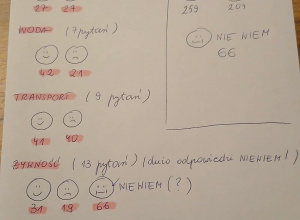 27 27
259 201
WODA (7 pytań)
NIE WIEM
66
42 21
TRANSPORT (9 pytań)
41 40
ŻYWNOŚĆ (13 pytań) (dużo odpowiedzi NIEWIEM!
NIEWIEM (?)
31 19 66